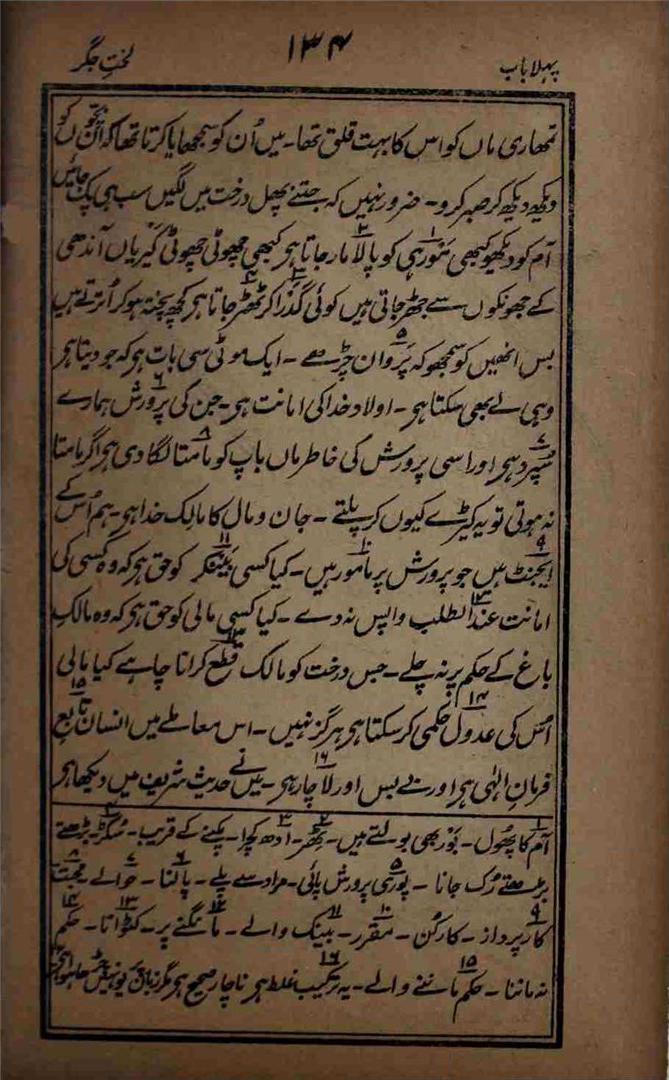 پہلا باب
۱۳۴
لختِ جگر
تمھاری ماں کو اس کا بہت قلق تھا۔ میں اُن کو سمجھایا کرتا تھا کہ ان بچّوں کو
دیکھ دیکھ کر صبر کرو۔ ضرور نہیں کہ جتنے پھل درخت میں لگیں سب ہی پک جائیں
آم کو دیکھو کبھی مَور ہی کو پالا مار جاتا ہو کبھی چھوٹی چھوٹی کَیریاں آندھی
کے جھونکوں سے جھڑ جاتی ہیں کوئی گدّرا کر ٹھٹھر جاتا ہو کچھ پختہ ہو کر اُترتے ہیں
بس انھیں کو سمجھو کہ پَروان چڑھے۔ ایک موٹی سی بات ہو کہ جو دیتا ہو
وہی لے بھی سکتا ہو۔ اولاد خدا کی امانت ہو۔ جن کی پرورش ہمارے
سُپرد ہو اور اسی پرورش کی خاطر ماں باپ کو مامتا لگا دی ہو اگر مامتا
نہ ہوتی تو یہ کیڑے کیوں کر پلتے۔ جان و مال کا مالِک خدا ہو۔ ہم اُس کے
ایجنٹ ہیں جو پرورش پر مامور ہیں۔ کیا کسی بَینکر کو حق ہو کہ وہ کسی کی
امانت عند الطلب واپس نہ دے۔ کیا کسی مالی کو حق ہو کہ وہ مالکِ
باغ کے حکم پر نہ چلے۔ جس درخت کو مالک قطع کرانا چاہے کیا مالی
اُس کی عدول حکمی کر سکتا ہو ہرگز نہیں۔ اس معاملے میں انسان تابعِ
فرمانِ الٰہی ہو اور بے بس اور لاچار ہو۔ میں نے حدیث شریف میں دیکھا ہو
۱ آم کا پھول۔ بَور بھی بولتے ہیں۔ ۲ ٹھِر۔ ۳ ادھ کچرا۔ پکنے کے قریب۔ ۴ سُکڑ۔ بڑھتے
بڑھتے رُک جانا۔ ۵ پوری پرورش پائی۔ مراد سے پلے۔ ۶ پالنا۔ ۷ حوالے ۸ محبت
۹ کارپرداز۔ کارکُن۔ ۱۰ مقرر۔ ۱۱ بینک والے۔ ۱۲ مانگنے پر۔ ۱۳ کٹوانا۔ ۱۴ حکم
نہ ماننا۔ ۱۵ حکم ماننے والے۔ ۱۶ یہ ترکیب غلط ہو ناچار صحیح ہو مگر زبان